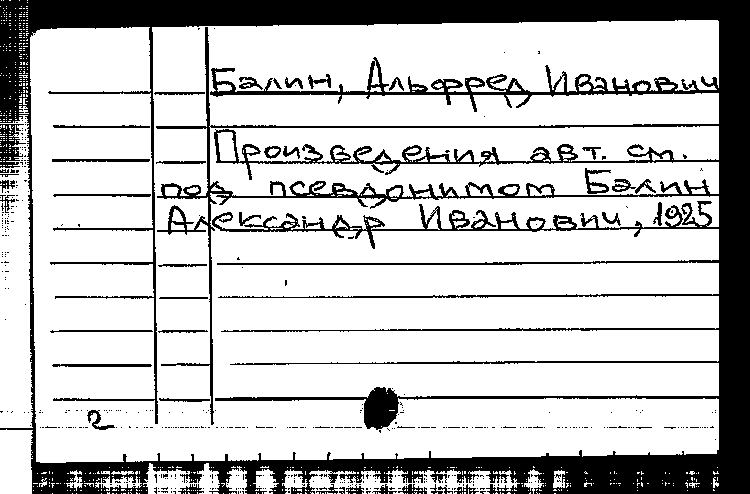 Балин, Альфред Иванович
Произведения авт. см.
под псевдонимом Балин
Александр Иванович, 1925
2